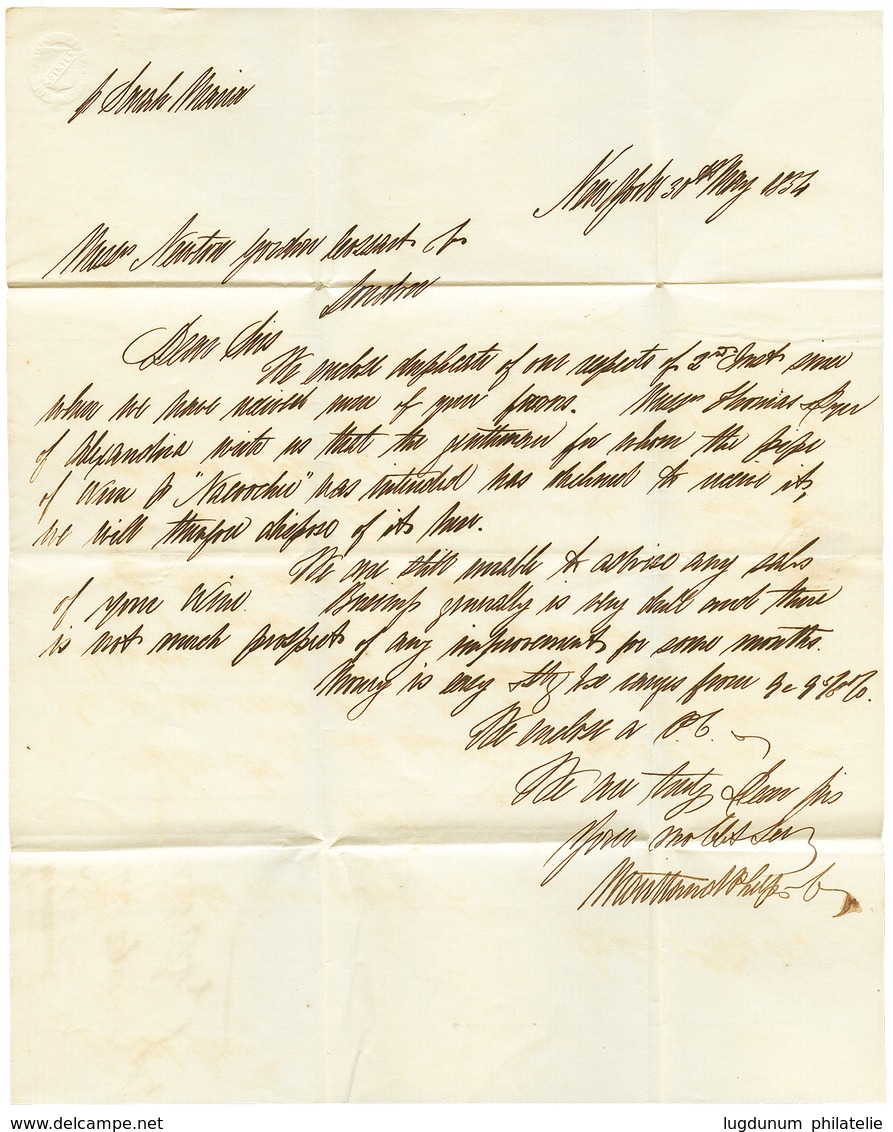 p Sarah Maria
New York 30th May 1854
Messrs Newton Gordon Cossart &
London
Dear Sirs
We enclose duplicate of our respects of 2nd Inst since
when we have received none of your favors. Messrs Thomas & Dyer
of Alexandria write us that the gentleman for whom the pipe
of Wine p "Nacoochee" was intended has declined to receive it,
we will therefore dispose of it here.
We are still unable to advise any sales
of your Wine. Business generally is very dull and there
is not much prospect of any improvement for some months.
Money is easy Stg Exe ranges from 9 @ 9
We enclose a P.C.
We are truly Dear Sirs
Your mo Obt Ser
Maitland Phelps & Co
www.delcampe.net
lugdunum philatelie